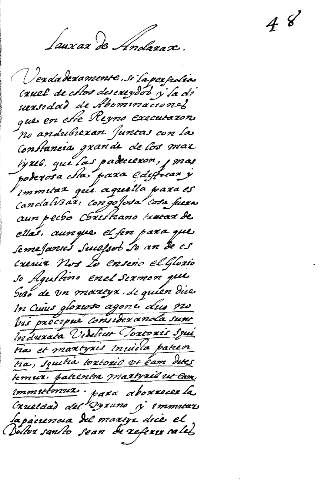 48
Lauxar de Andarax.
Verdaderamente, si la perfidia
cruel de estos descreydos y la di
uersidad de Abominaciones
que en este Reyno executaron
no andubieran juntas con la
constancia grande de los mar
tyres, que las padecieron, y mas
poderosa esta, para edificar y
immitar que aquella para es
candaliçar, congojosa cosa fuera
a un pecho Christiano tratar de
ellas, aunque el fin para que
semejantes sucessos se an de es
creuir Nos lo enseño el glorio
so Agustino en el sermon que
hiço de un martyr. de quien dice
In cuius glorioso agone duo no
bis præcipue consideranda sunt
indurata Videlicet Tortoris sæui
tia et martyris inuicta patien
tia, sæuitia tortoris ut eam detes
temur. patientia martyris ut eam
immitemur. para aborrecer la
crueldad del Tyrano y immitar
la paciencia del martyr dice el
Doctor sancto sean de referir tales